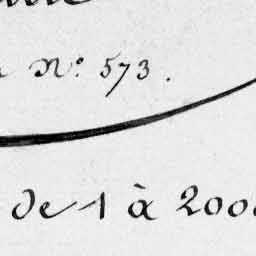 N.º 573.
de 1 à 200